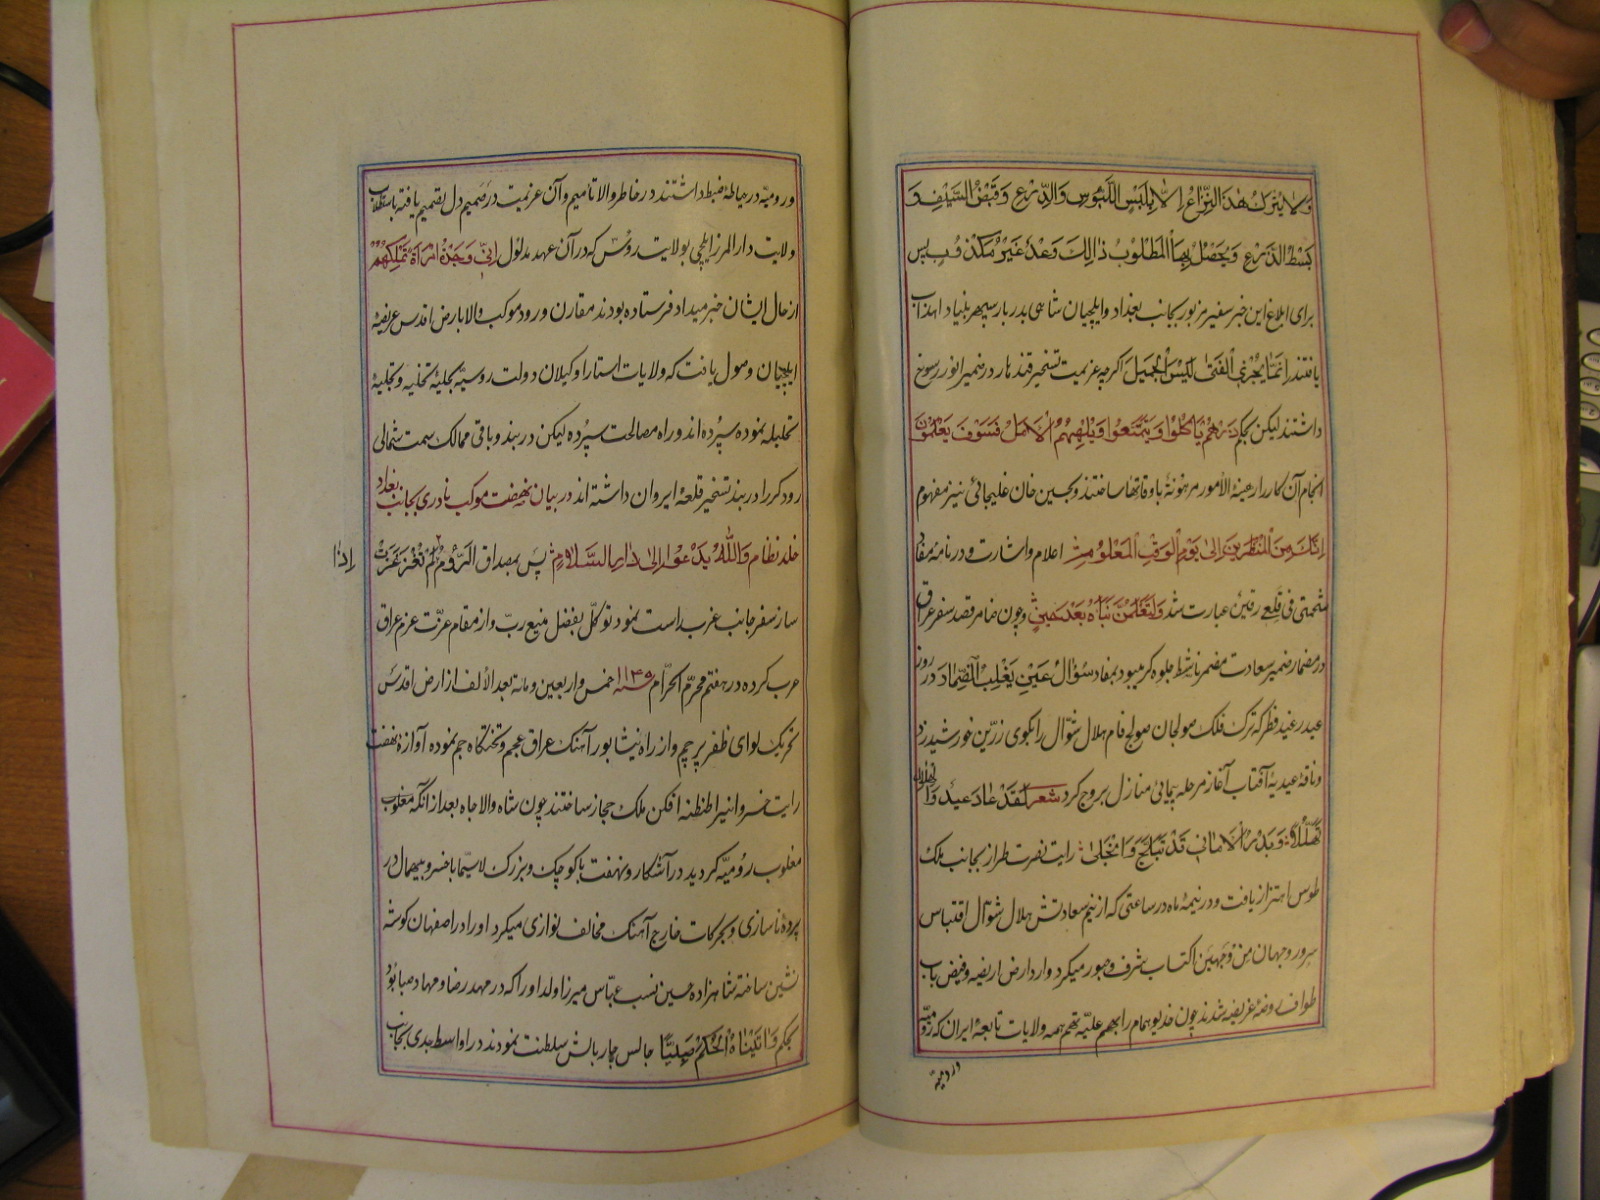 وَلا يَترُك هٰذَا النِّزاعَ اِلّا بِلَبْسِ اللَّبُوسِ وَالدِّرْعِ وَقَبْضِ السَّيْفِ وَ
بَسْطِ الذَّرْعِ وَ يَحْصُلُ بِهَا الْمَطْلُوبُ ذٰالِكَ وَعْدٌ غَيْرُ مَكْذُوبٍ پس
برای ابلاغ این خبر سفیر مزبور بجانب بغداد و ایلچیان شاهی بدربار سپهر بنیاد
یافتند اِنَّمَا یُجْزِی الْفَتیٰ لَیْسَ الْجَمَل اگرچه عزیمت تسخیر قندهار در ضمیر انور رسوخ
داشتند لیکن بحکم ذَرْهُمْ یَأکُلُوا وَ یَتَمَتَّعُوا وَ یُلْهِهِمُ الْاَمَلُ فَسَوْفَ یَعْلَمُونَ
انجام آن کار را رهینهٔ الاُمور مرهونة باوقاتها ساختند و بحسین خان غلیجائی نیز مفهوم
اِنَّکَ مِنَ الْمُنْظَرِینَ اِلیٰ یَوْمِ الْوَقْتِ الْمَعْلُومِ اعلام و اشارت و در نامه مفاد
عبارت شد وَلَتَعْلَمُنَّ نَبَأَهُ بَعْدَ حِینٍ و چون ضامر قصد سفر عراق
در مضمار ضمیر سعادت مضمر نشاط جلوه گر میبود بمفاد در روز
عید رغید فطر که ترک فلک صولجان صولجه فام هلال شوّال را بگوی زرّین خورشید زد
و ناقهٔ عیدیهٔ آفتاب آغاز مرحله پیمائی منازل بروج کرد شعر لَقَدْ عادَ عیدٌ وَالْهِلالُ
تَهَلَّلا وَ بَدْرُ الْاَمانی قَدْ تَبَلَّجَ وَ انْجَلیٰ رایت نصرت طراز بجانب ملک
طوس اهتزاز یافت و در نیمهٔ ماه در ساعتی که از نیّر سعادتش هلال شوّال اقتباس
سرور دجهان مِنْ وَجْهَیْن اکتساب شرف و حبور میکرد وارد ارض اریضه و فیض یاب
طواف روضهٔ عریضه شدند چون خدیو همام را بهم علیّه بهم همه ولایات تابعهٔ ایران که رومیّه
و رومیّه
و رومیّه در حیاطهٔ ضبط داشتند در خاطر والا تامیم و آن عزیمت در صمیم دل تصمیم یافته
ولایت دار المرز ایلچی بولایت روس که در آن عهد مدلول اِنّی وَجَدْتُ امْرَأَةً تَمْلِکُهُمْ
از حال ایشان خبر میداد فرستاده بودند مقارن ورود موکب والا بارض اقدس عریضهٔ
ایلچیان وصول یافت که ولایات استارا و گیلان دولت روسیّه بکلیّه تخلیه و تجلیهٔ
نموده سپرده اند و راه مصالحت سپرده لیکن دربند و باقی ممالک سمت شمالی
رود کر را در بند تسخیر قلعهٔ ایروان داشته اند در بیان نهضت موکب نادری بجانب بغداد
خلد نظام وَاللّٰهُ یَدْعُوا اِلیٰ دَارِ السَّلَامِ پس بمصداق الرُّومُ
اِذٰا
ساز سفر جانب غرب راست نمود توکّل بفضل منیع ربّ و از مقام عزّت عزم عراق
عرب کرده در هفتم محرّم الحرام سنه ۱۱۴۵ خمس و اربعین و مائة بعد الألف از ارض اقدس
تحریک لوای ظفر پرچم و از راه نیشابور آهنگ عراق عجم و تختگاه جم نموده آوازهٔ نهضت
رایت خسروانیرا طنطنه افکن ملک حجاز ساختند چون شاه والا جاه بعد از آنکه مغلوب
مغلوب رومیّه گردید در آشکار و نهفت با کوچک و بزرگ لاسیّما با خسرو بیهمال در
پردهٔ ناسازی و بحرکات خارج آهنگ مخالف نوازی میکرد او را در اصفهان گوشه
نشین ساخته شاهزاده حسین نسب عبّاس میرزا ولد او را که در مهد رضا و مهاد صبا بود
بحکم وَ اٰتَیْنَاهُ الْحُکْمَ صَبِیًّا جالس چار بالش سلطنت نمودند در اواسط جدی بجانب